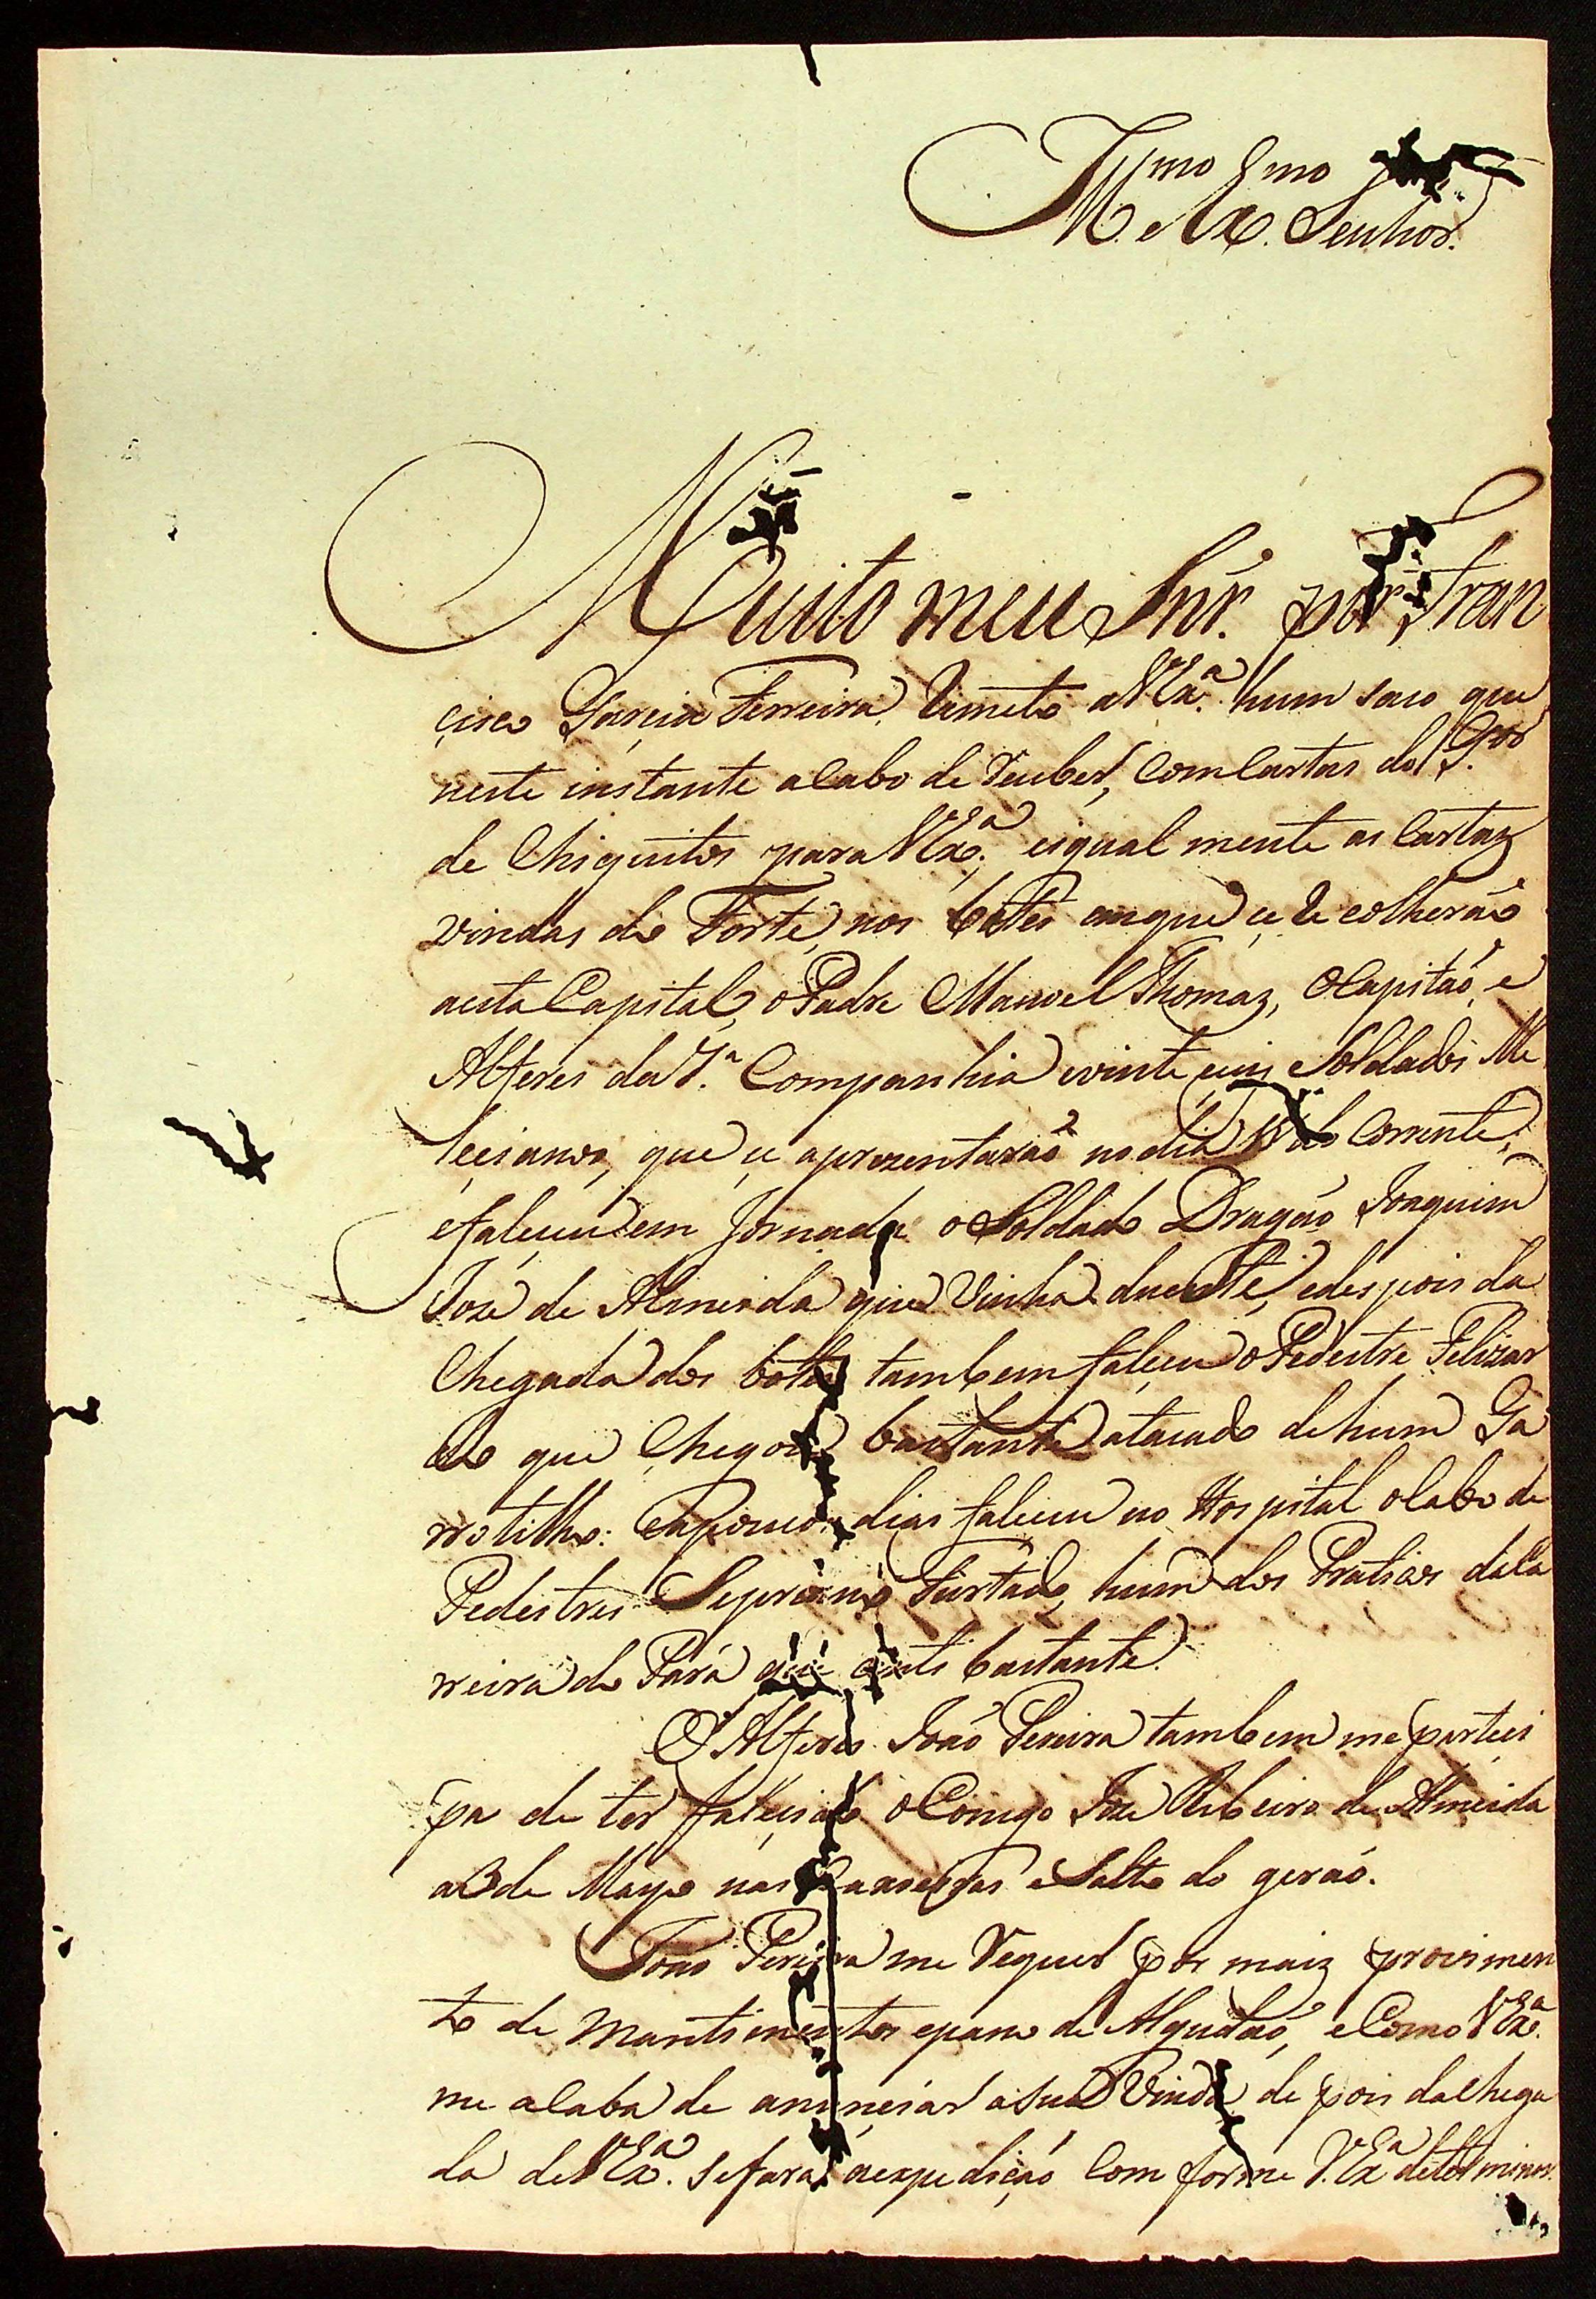 Ill.mo e Ex.mo Senhor.
Muito meu Snr. por Fran
cisco Garcia Ferreira Remeto a VEx.ª hum saco que
neste instante acabo de Receber, com Cartas do G.or
de Chiquitos para VEx.ª, eigual mente as Cartaz
vindas do Forte, nos botes emque se Recolheraõ
aesta Capital, o Padre Manoel Thomaz, oCapitaõ, e
Alferes da 7.ª Companhia evinte Soldados Me
lecianos, que se aprezentaraõ no dia do Corrente,
efaleceu em Jornada o Soldado Dragaõ Joaquim
Joze de Almeida que Vinha duente, edespois da
Chegada dos botes tambem faleceu o Pedestre Felizar
do que Chegou bastante atacado dehum Ga
rrotilho: Eapoucos dias faleceu no Hospital oCabo de
Pedestres Sepriano Furtado, hum dos Praticos daCa
rreira do Pará que cinto bastante.
O Alferes Joaõ Pereira tambem me partici
pa de ter falecido oConigo Joze Ribeiro de Almeida
a3 de Mayo nas e Salto do geraõ.
Joaõ Pereira me Requer por maiz provimen
to de mantimentos epano de Algudaõ, eComo VEx.ª
me acaba de anunciar asua Vinda, de pois daChega
da deVEx.ª Sefara aexpediçaõ Com forme V.Exª determinar.